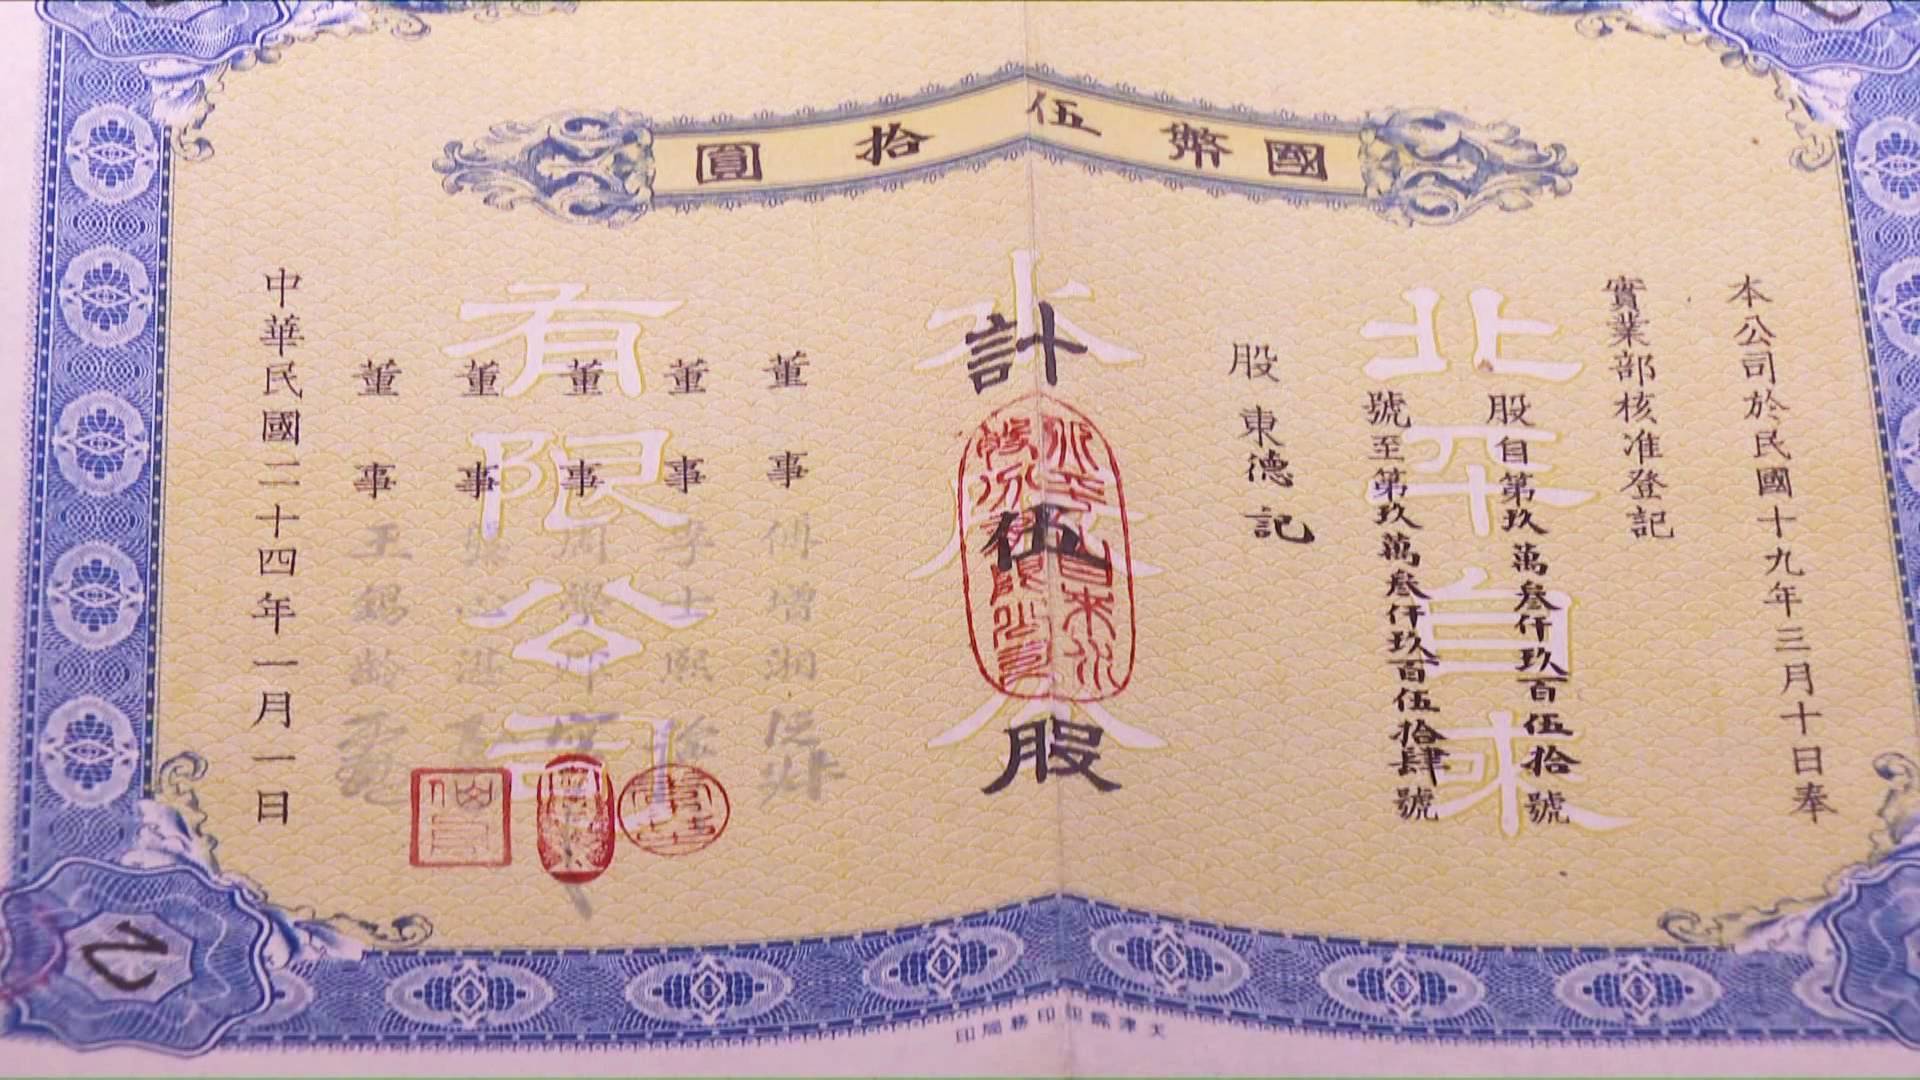 國幣伍拾圓
本公司於民國十九年三月十日奉
實業部核准登記
北平自來
水 股份
有限公司
股自第玖萬叁仟玖百伍拾號
號至第玖萬叁仟玖百伍拾肆號
股東德記
計伍股
北平自來水
股份有限公司
董事 傅增湘
董事 李士熙
董事 周學
董事 心湛
董事 王錫齡
中華民國二十四年一月一日
乙
天津 印務局印